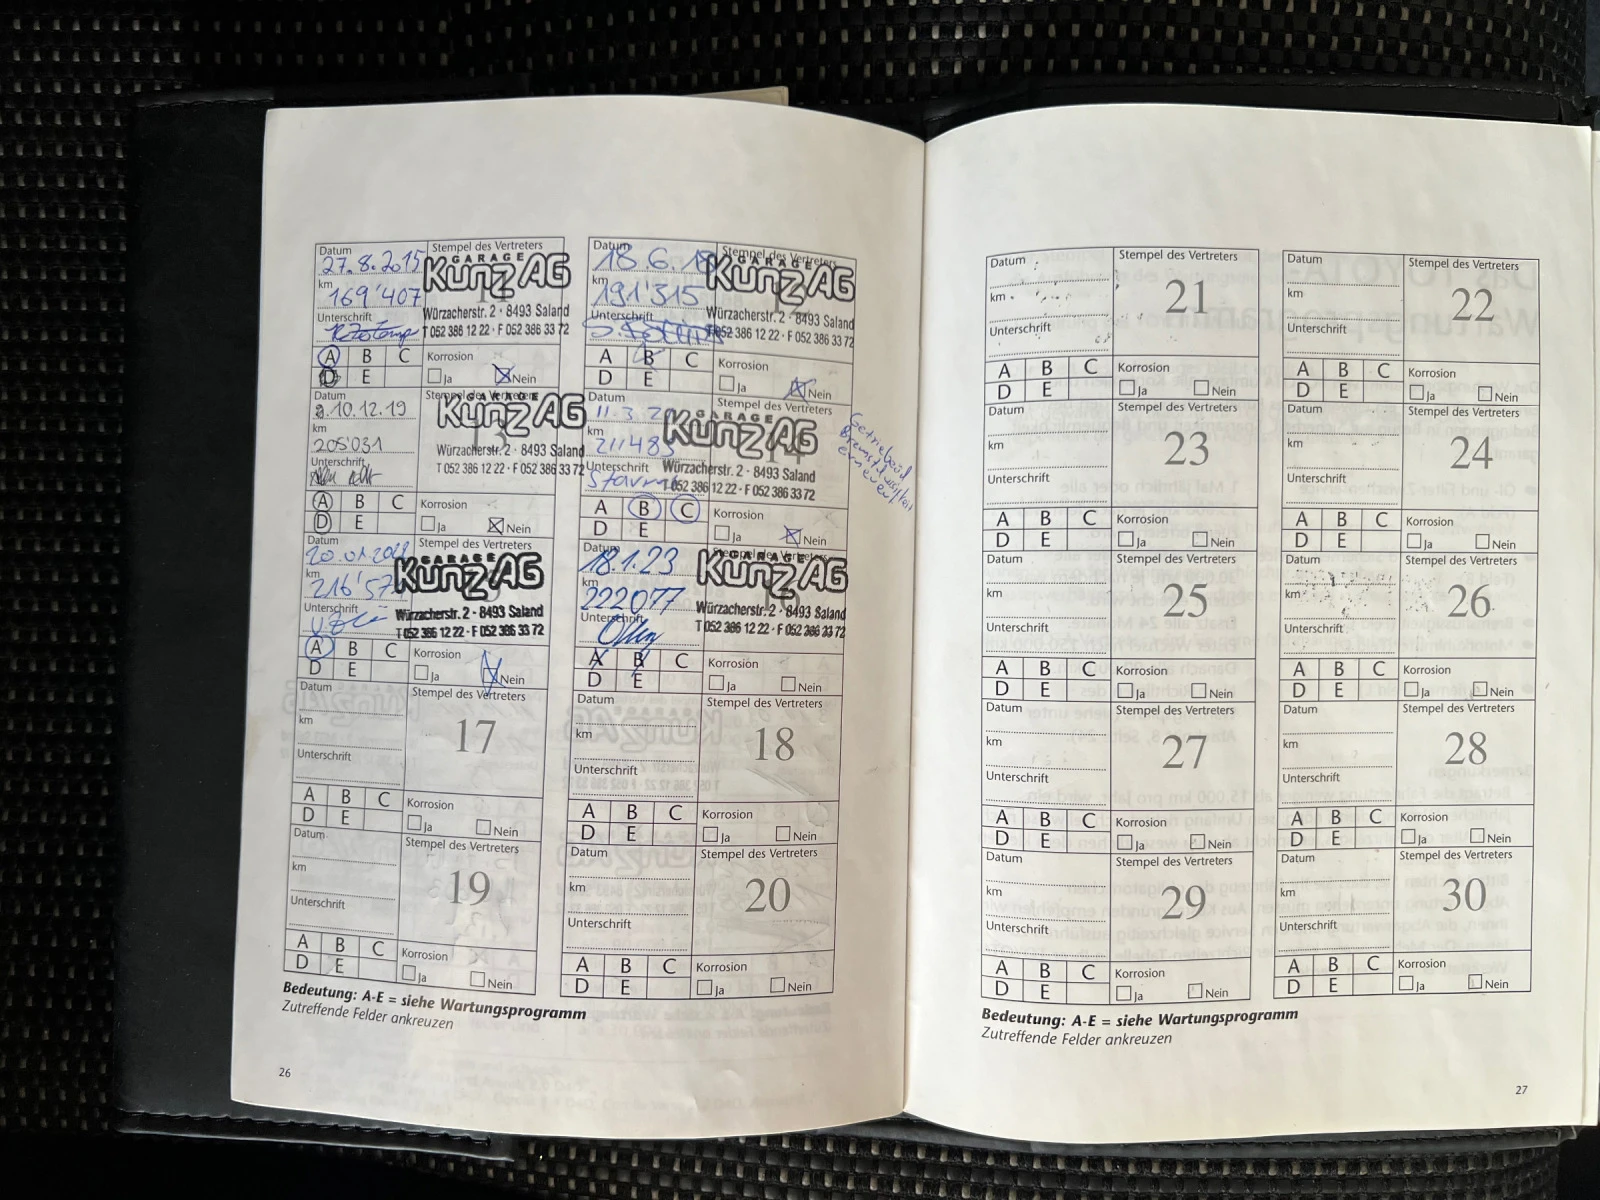 Datum
27.8.2015
km
169'407
Unterschrift
Stempel des Vertreters
GARAGE
Kunz AG
Würzacherstr. 2 · 8493 Saland
T 052 386 12 22 · F 052 386 33 72
A B C
D E
Korrosion
Ja Nein
Datum
18.6.
km
191'315
Unterschrift
Stempel des Vertreters
GARAGE
Kunz AG
Würzacherstr. 2 · 8493 Saland
T 052 386 12 22 · F 052 386 33 72
A B C
D E
Korrosion
Ja Nein
Datum
10.12.19
km
205'031
Unterschrift
Stempel des Vertreters
GARAGE
Kunz AG
Würzacherstr. 2 · 8493 Saland
T 052 386 12 22 · F 052 386 33 72
A B C
D E
Korrosion
Ja Nein
Datum
11.3.
km
211483
Unterschrift
Stempel des Vertreters
GARAGE
Kunz AG
Würzacherstr. 2 · 8493 Saland
T 052 386 12 22 · F 052 386 33 72
Getriebeöl
Bremsflüssigkeit
erneuert
A B C
D E
Korrosion
Ja Nein
Datum
20.01.2022
km
216'57
Unterschrift
Stempel des Vertreters
GARAGE
Kunz AG
Würzacherstr. 2 · 8493 Saland
T 052 386 12 22 · F 052 386 33 72
A B C
D E
Korrosion
Ja Nein
Datum
18.1.23
km
222077
Unterschrift
Stempel des Vertreters
GARAGE
Kunz AG
Würzacherstr. 2 · 8493 Saland
T 052 386 12 22 · F 052 386 33 72
A B C
D E
Korrosion
Ja Nein
Datum
km
Unterschrift
Stempel des Vertreters
17
A B C
D E
Korrosion
Ja Nein
Datum
km
Unterschrift
Stempel des Vertreters
18
A B C
D E
Korrosion
Ja Nein
Datum
km
Unterschrift
Stempel des Vertreters
19
A B C
D E
Korrosion
Ja Nein
Datum
km
Unterschrift
Stempel des Vertreters
20
A B C
D E
Korrosion
Ja Nein
Bedeutung: A-E = siehe Wartungsprogramm
Zutreffende Felder ankreuzen
26
Datum
km
Unterschrift
Stempel des Vertreters
21
A B C
D E
Korrosion
Ja Nein
Datum
km
Unterschrift
Stempel des Vertreters
22
A B C
D E
Korrosion
Ja Nein
Datum
km
Unterschrift
Stempel des Vertreters
23
A B C
D E
Korrosion
Ja Nein
Datum
km
Unterschrift
Stempel des Vertreters
24
A B C
D E
Korrosion
Ja Nein
Datum
km
Unterschrift
Stempel des Vertreters
25
A B C
D E
Korrosion
Ja Nein
Datum
km
Unterschrift
Stempel des Vertreters
26
A B C
D E
Korrosion
Ja Nein
Datum
km
Unterschrift
Stempel des Vertreters
27
A B C
D E
Korrosion
Ja Nein
Datum
km
Unterschrift
Stempel des Vertreters
28
A B C
D E
Korrosion
Ja Nein
Datum
km
Unterschrift
Stempel des Vertreters
29
A B C
D E
Korrosion
Ja Nein
Datum
km
Unterschrift
Stempel des Vertreters
30
A B C
D E
Korrosion
Ja Nein
Bedeutung: A-E = siehe Wartungsprogramm
Zutreffende Felder ankreuzen
27